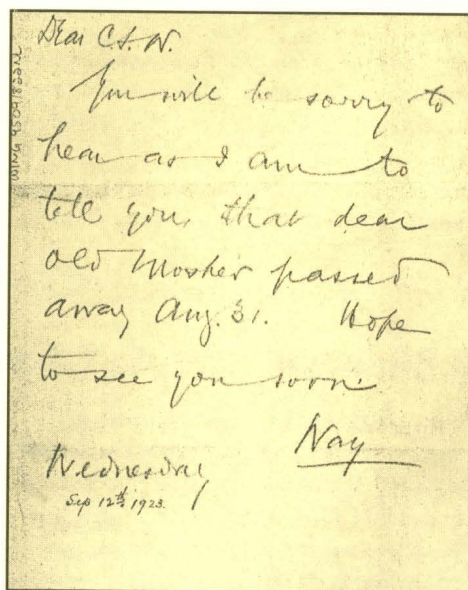 Dear C.S.W.
You will be sorry to
hear as I am to
tell you, that dear
old Mosher passed
away Aug. 31. Hope
to see you soon.
Nay
Wednesday
Sep 12th 1923.